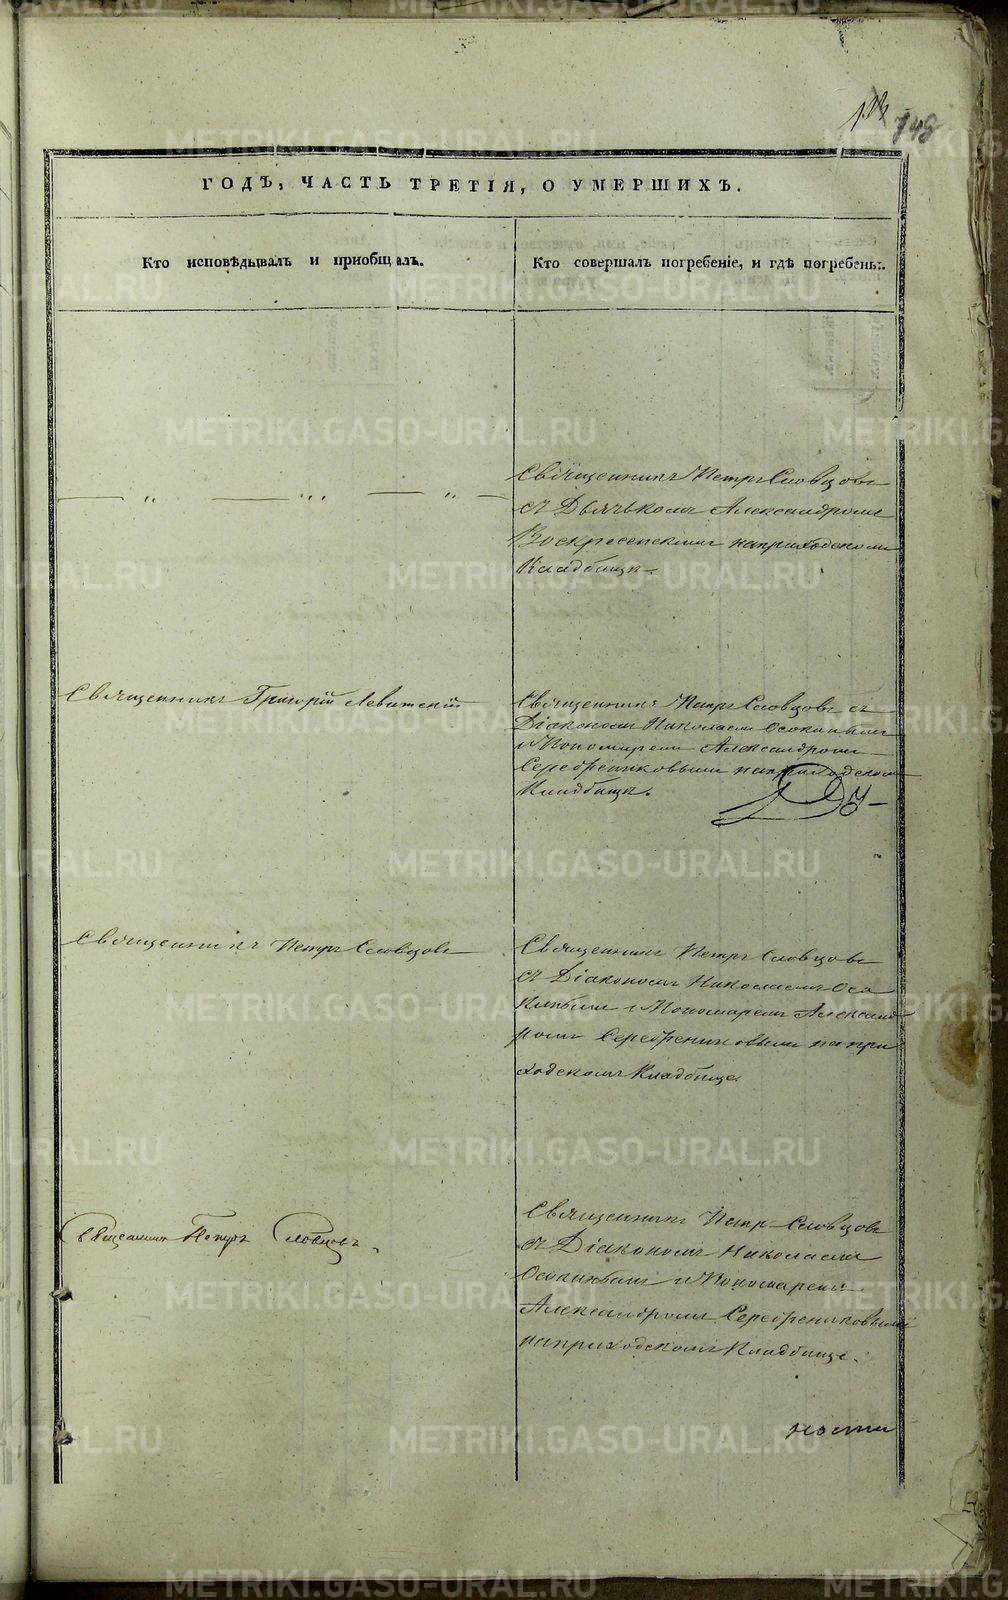 748
ГОДЪ, ЧАСТЬ ТРЕТІЯ, О УМЕРШИХЪ.
Кто исповѣдывалъ и пріобщалъ.
Кто совершалъ погребеніе, и гдѣ погребены.
— „ — „ — „ —
Священникъ Петръ Словцовъ
съ Дьячькомъ Александромъ
Воскресенскимъ наприходскомъ
Кладбищѣ.
Священникъ Григорій Левитскій
Священникъ Петръ Словцовъ съ
Діакономъ Николаемъ Осокинымъ
и Пономаремъ Александромъ
Серебренниковымъ наприходскомъ
Кладбищѣ.
Священникъ Петръ Словцовъ
Священникъ Петръ Словцовъ
съ Діакономъ Николаемъ Осо
кинымъ и Пономаремъ Александ
ромъ Серебрениковымъ на при
ходскомъ Кладбище.
Священникъ Петръ Словцовъ.
Священникъ Петръ Словцовъ
съ Діакономъ Николаемъ
Осокинымъ и Пономаремъ
Александромъ Серебрениковымъ
наприходскомъ Кладбище.
ности
METRIKI.GASO-URAL.RU